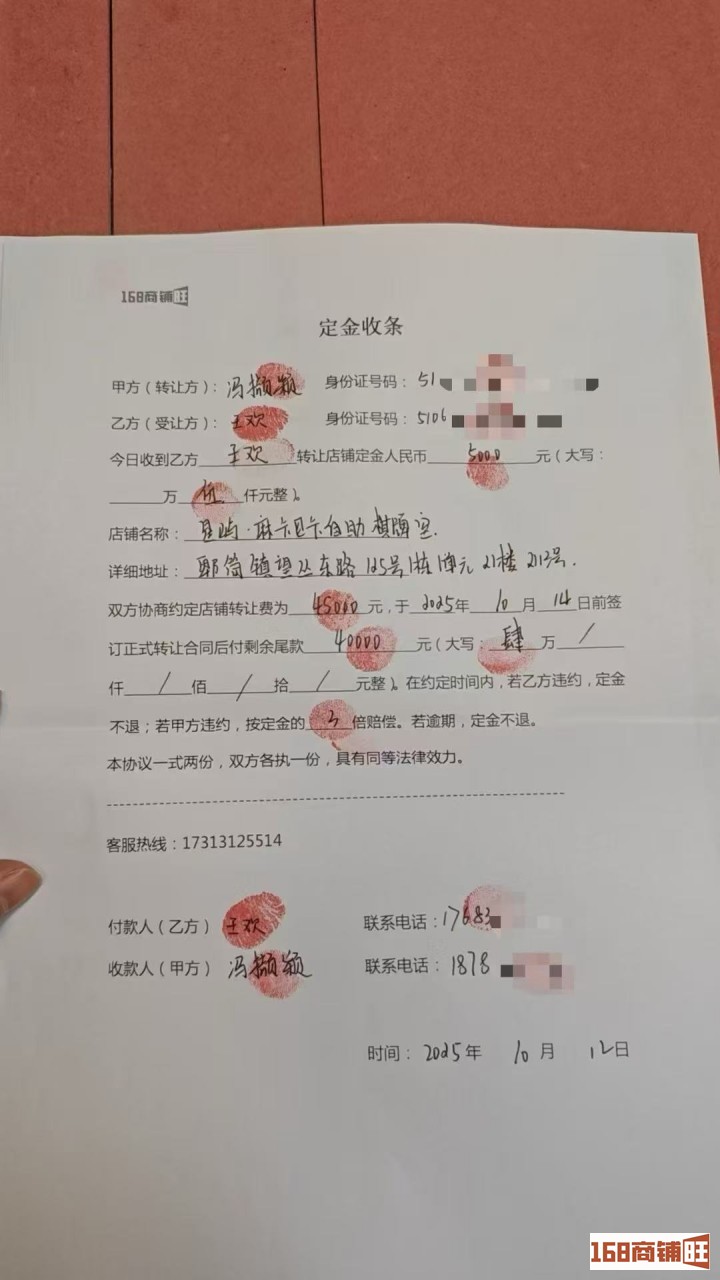 168商铺旺
定金收条
甲方（转让方）：冯撷颖 身份证号码：51
乙方（受让方）：王欢 身份证号码：5106
今日收到乙方 王欢 转让店铺定金人民币 5000 元（大写：
万 伍 仟元整）。
店铺名称：星屿·麻卡巴卡自助棋牌室.
详细地址：郫筒镇望丛东路125号1栋1单元21楼2113号.
双方协商约定店铺转让费为 45000 元，于 2025年 10 月 14 日前签
订正式转让合同后付剩余尾款 40000 元（大写：肆 万 /
仟 / 佰 / 拾 / 元整）。在约定时间内，若乙方违约，定金
不退；若甲方违约，按定金的 3 倍赔偿。若逾期，定金不退。
本协议一式两份，双方各执一份，具有同等法律效力。
客服热线：17313125514
付款人（乙方） 王欢 联系电话：17683
收款人（甲方） 冯撷颖 联系电话：1878
时间：2025年 10月 12日
168商铺旺